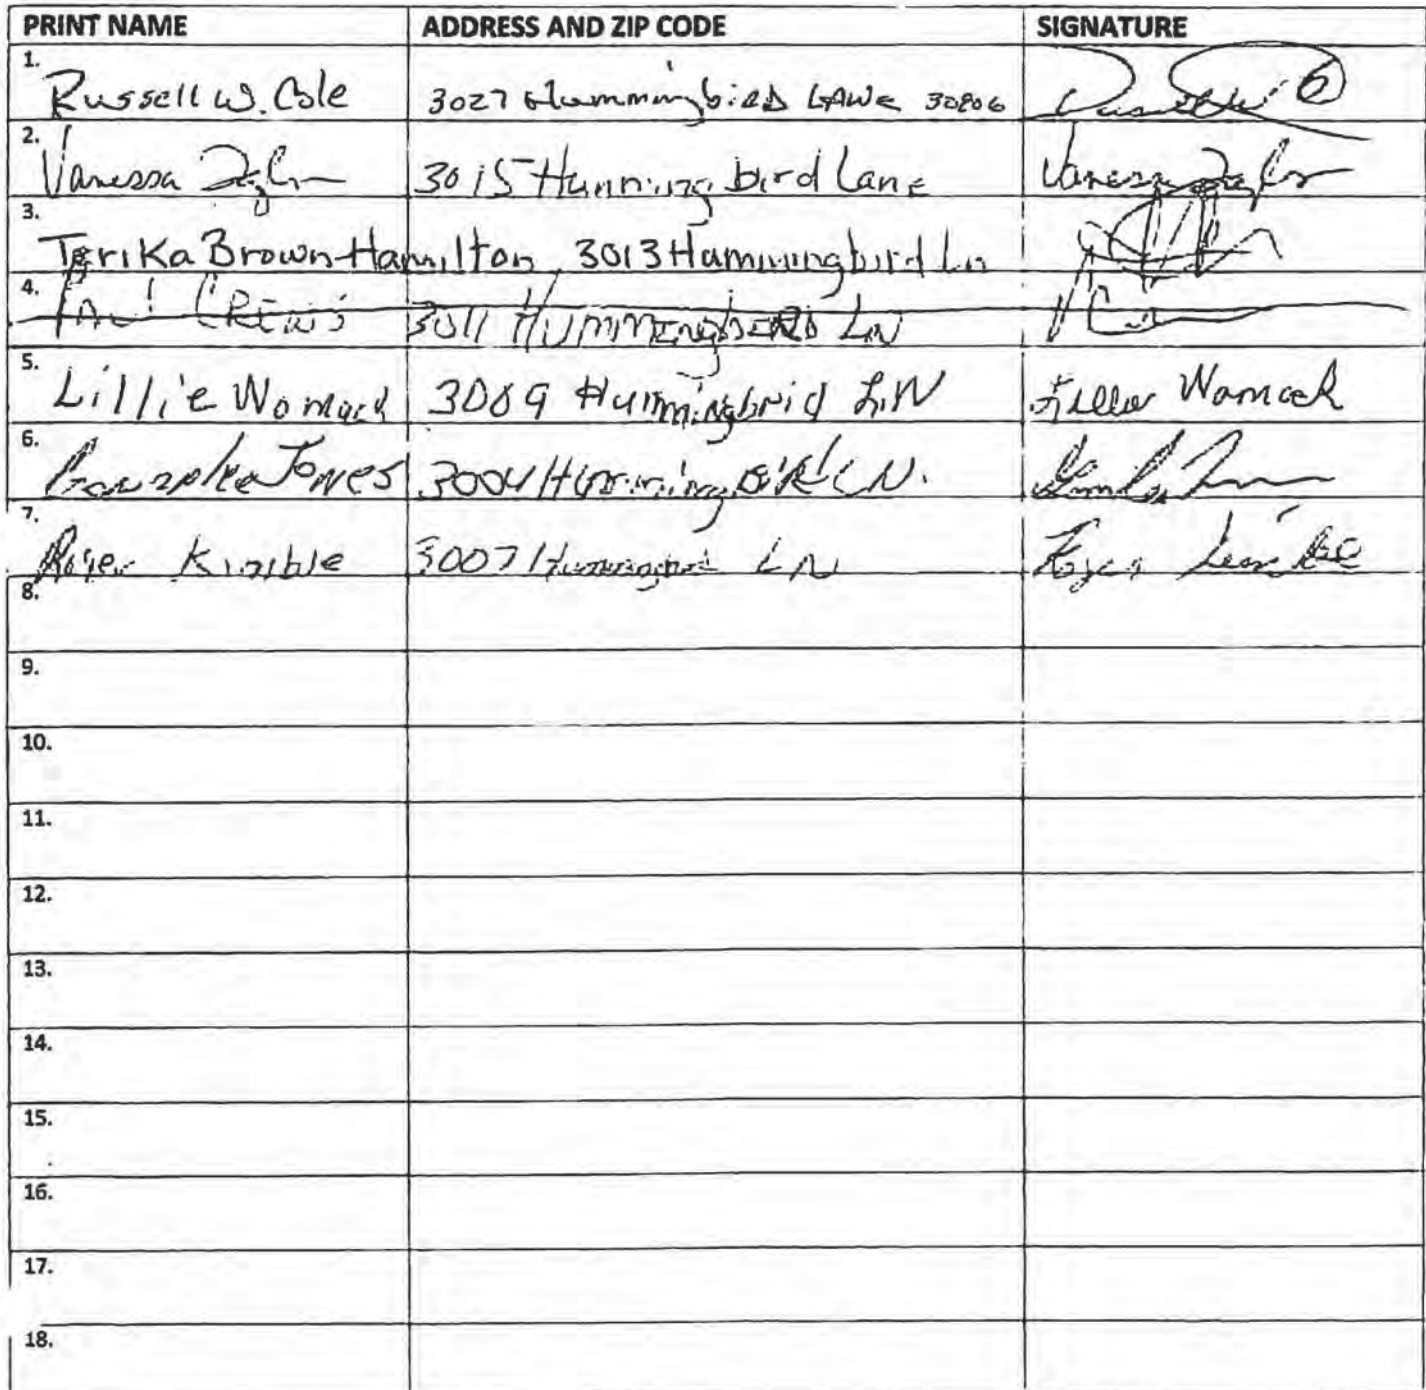 PRINT NAME ADDRESS AND ZIP CODE SIGNATURE
1. Russell W. Cole 3027 Hummingbird LANE 30806 6
2. Vanessa 3015 Hummingbird Lane Vanessa
3. Terika Brown-Hamilton 3013 Hummingbird Ln
4. Paul CREWS 3011 HUMMINGBIRD LN
5. Lillie Womack 3009 Hummingbrid LN Lillie Womack
6. Jones 3004 Humming BIRd LN.
7. Roger Kimble 3007 Hummingbird LN Roger Kimble
8.
9.
10.
11.
12.
13.
14.
15.
16.
17.
18.